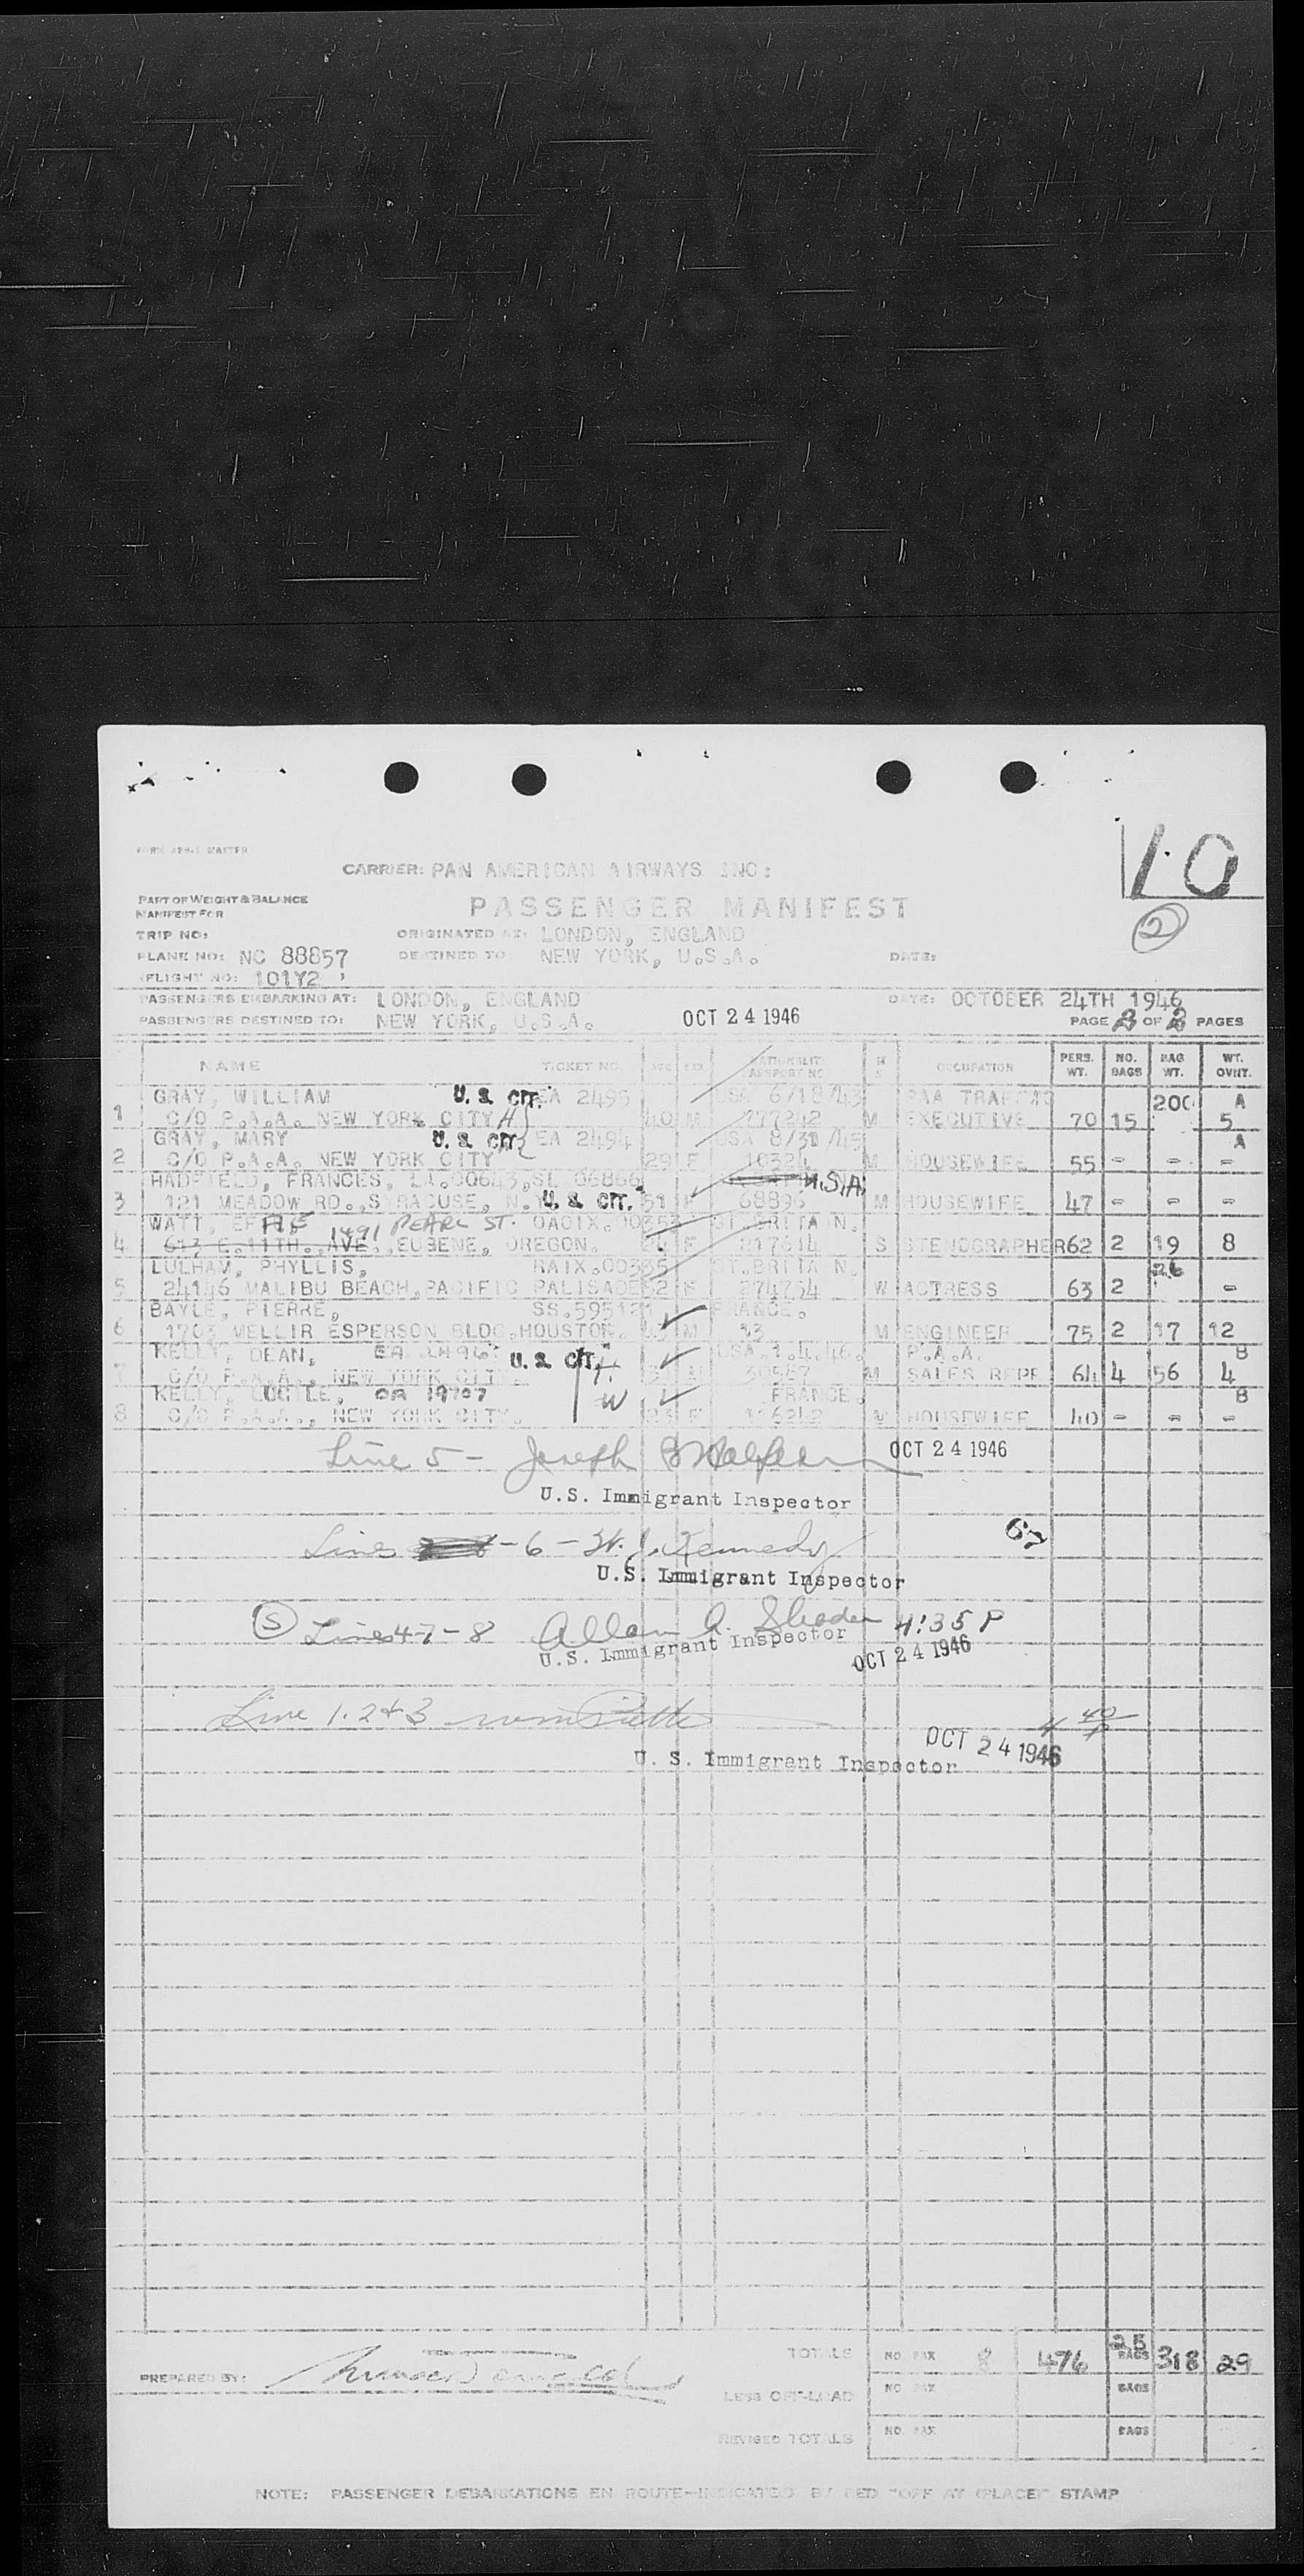 CARRIER: PAN AMERICAN AIRWAYS INC:
10
PART OF WEIGHT & BALANCE
MANIFEST FOR
PASSENGER MANIFEST
2
TRIP NO:
ORIGINATED AT: LONDON, ENGLAND
PLANE NO: NC 88857
DESTINED TO NEW YORK, U.S.A.
DATE:
FLIGHT NO: 101Y2
PASSENGERS EMBARKING AT: LONDON, ENGLAND
DATE: OCTOBER 24TH 1946
PASSENGERS DESTINED TO: NEW YORK, U.S.A.
OCT 24 1946
PAGE 2 OF 2 PAGES
NAME TICKET NO. AGE SEX NATIONALITY PASSPORT NO M S OCCUPATION PERS. WT. NO. BAGS BAG WT. WT. OVHT.
GRAY, WILLIAM U. S. CIT. EA 2495 USA 6/18/43 PAA TRAFFIC 200 A
1 C/O P.A.A. NEW YORK CITY H 40 M 777242 M EXECUTIVE 70 15 5
GRAY, MARY U. S. CIT. EA 2494 USA 8/30/45 A
2 C/O P.A.A. NEW YORK CITY 29 F M HOUSEWIFE 55 - - -
HADFIELD, FRANCES, LA.00643,SL 06866 U.S.A.
3 121 MEADOW RD.,SYRACUSE, N.Y. U. S. CIT. 51 F 68896 M HOUSEWIFE 47 - - -
WATT, EFFIE 1491 PEARL ST. OAOIX.00353 GT.BRITAIN.
4 613 E.11TH. AVE. EUGENE, OREGON. F 217614 S STENOGRAPHER 62 2 19 8
LULHAM, PHYLLIS, RAIX.00335 GT.BRITAIN. 26
5 24146 MALIBU BEACH,PACIFIC PALISADES 52 F 274754 W ACTRESS 63 2 -
BAYLE, PIERRE, SS.595121 FRANCE.
6 1703 MELLIR ESPERSON BLDG.HOUSTON. M 33 M ENGINEER 75 2 17 12
KELLY, DEAN, EA 2496 U. S. CIT. H. USA.1.4.46. P.A.A. B
7 C/O P.A.A., NEW YORK CITY. M 30587 M SALES REPE 64 4 56 4
KELLY, LUCILE, OA 19707 W FRANCE. B
8 C/O P.A.A., NEW YORK CITY. 23 F 116242 M HOUSEWIFE 40 - - -
Line 5 - Joseph OCT 24 1946
U.S. Immigrant Inspector
Lines - 6 - W. J. Kennedy
U.S. Immigrant Inspector
S Lines 4-7-8 Allan A. 4:35 P
U.S. Immigrant Inspector OCT 24 1946
Line 1.2+3 4 40 P
OCT 24 1946
U. S. Immigrant Inspector
TOTALS NO PAX 8 476 25 BAGS 318 29
PREPARED BY:
LESS OFF-LOAD NO PAX BAGS
REVISED TOTALS NO PAX BAGS
NOTE: PASSENGER DEBARKATIONS EN ROUTE-INDICATED BY RED "OFF AT (PLACE)" STAMP